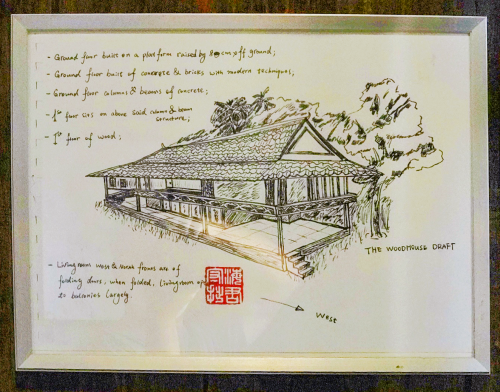 - Ground floor built on a platform raised by 80cm off ground;
- Ground floor built of concrete & bricks with modern techniques,
- Ground floor columns & beams of concrete;
- 1st floor sits on above said column & beam
structure;
- 1st floor of wood;
THE WOODHOUSE DRAFT
- Livingroom west & front frames are of
folding doors, when folded, livingroom open
to balconies largely.
West